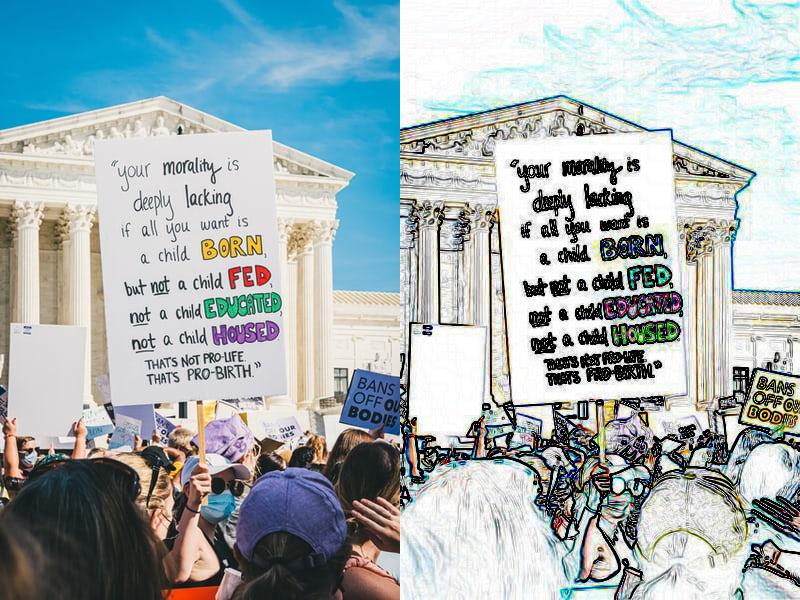 "your morality is
deeply lacking
if all you want is
a child BORN,
but not a child FED,
not a child EDUCATED,
not a child HOUSED
THATS NOT PRO-LIFE.
THAT'S PRO-BIRTH."
BANS
OFF OUR
BODIES
"your morality is
deeply lacking
if all you want is
a child BORN,
but not a child FED,
not a child EDUCATED,
not a child HOUSED
THATS NOT PRO-LIFE.
THAT'S PRO-BIRTH."
BANS
OFF OU
BODIES